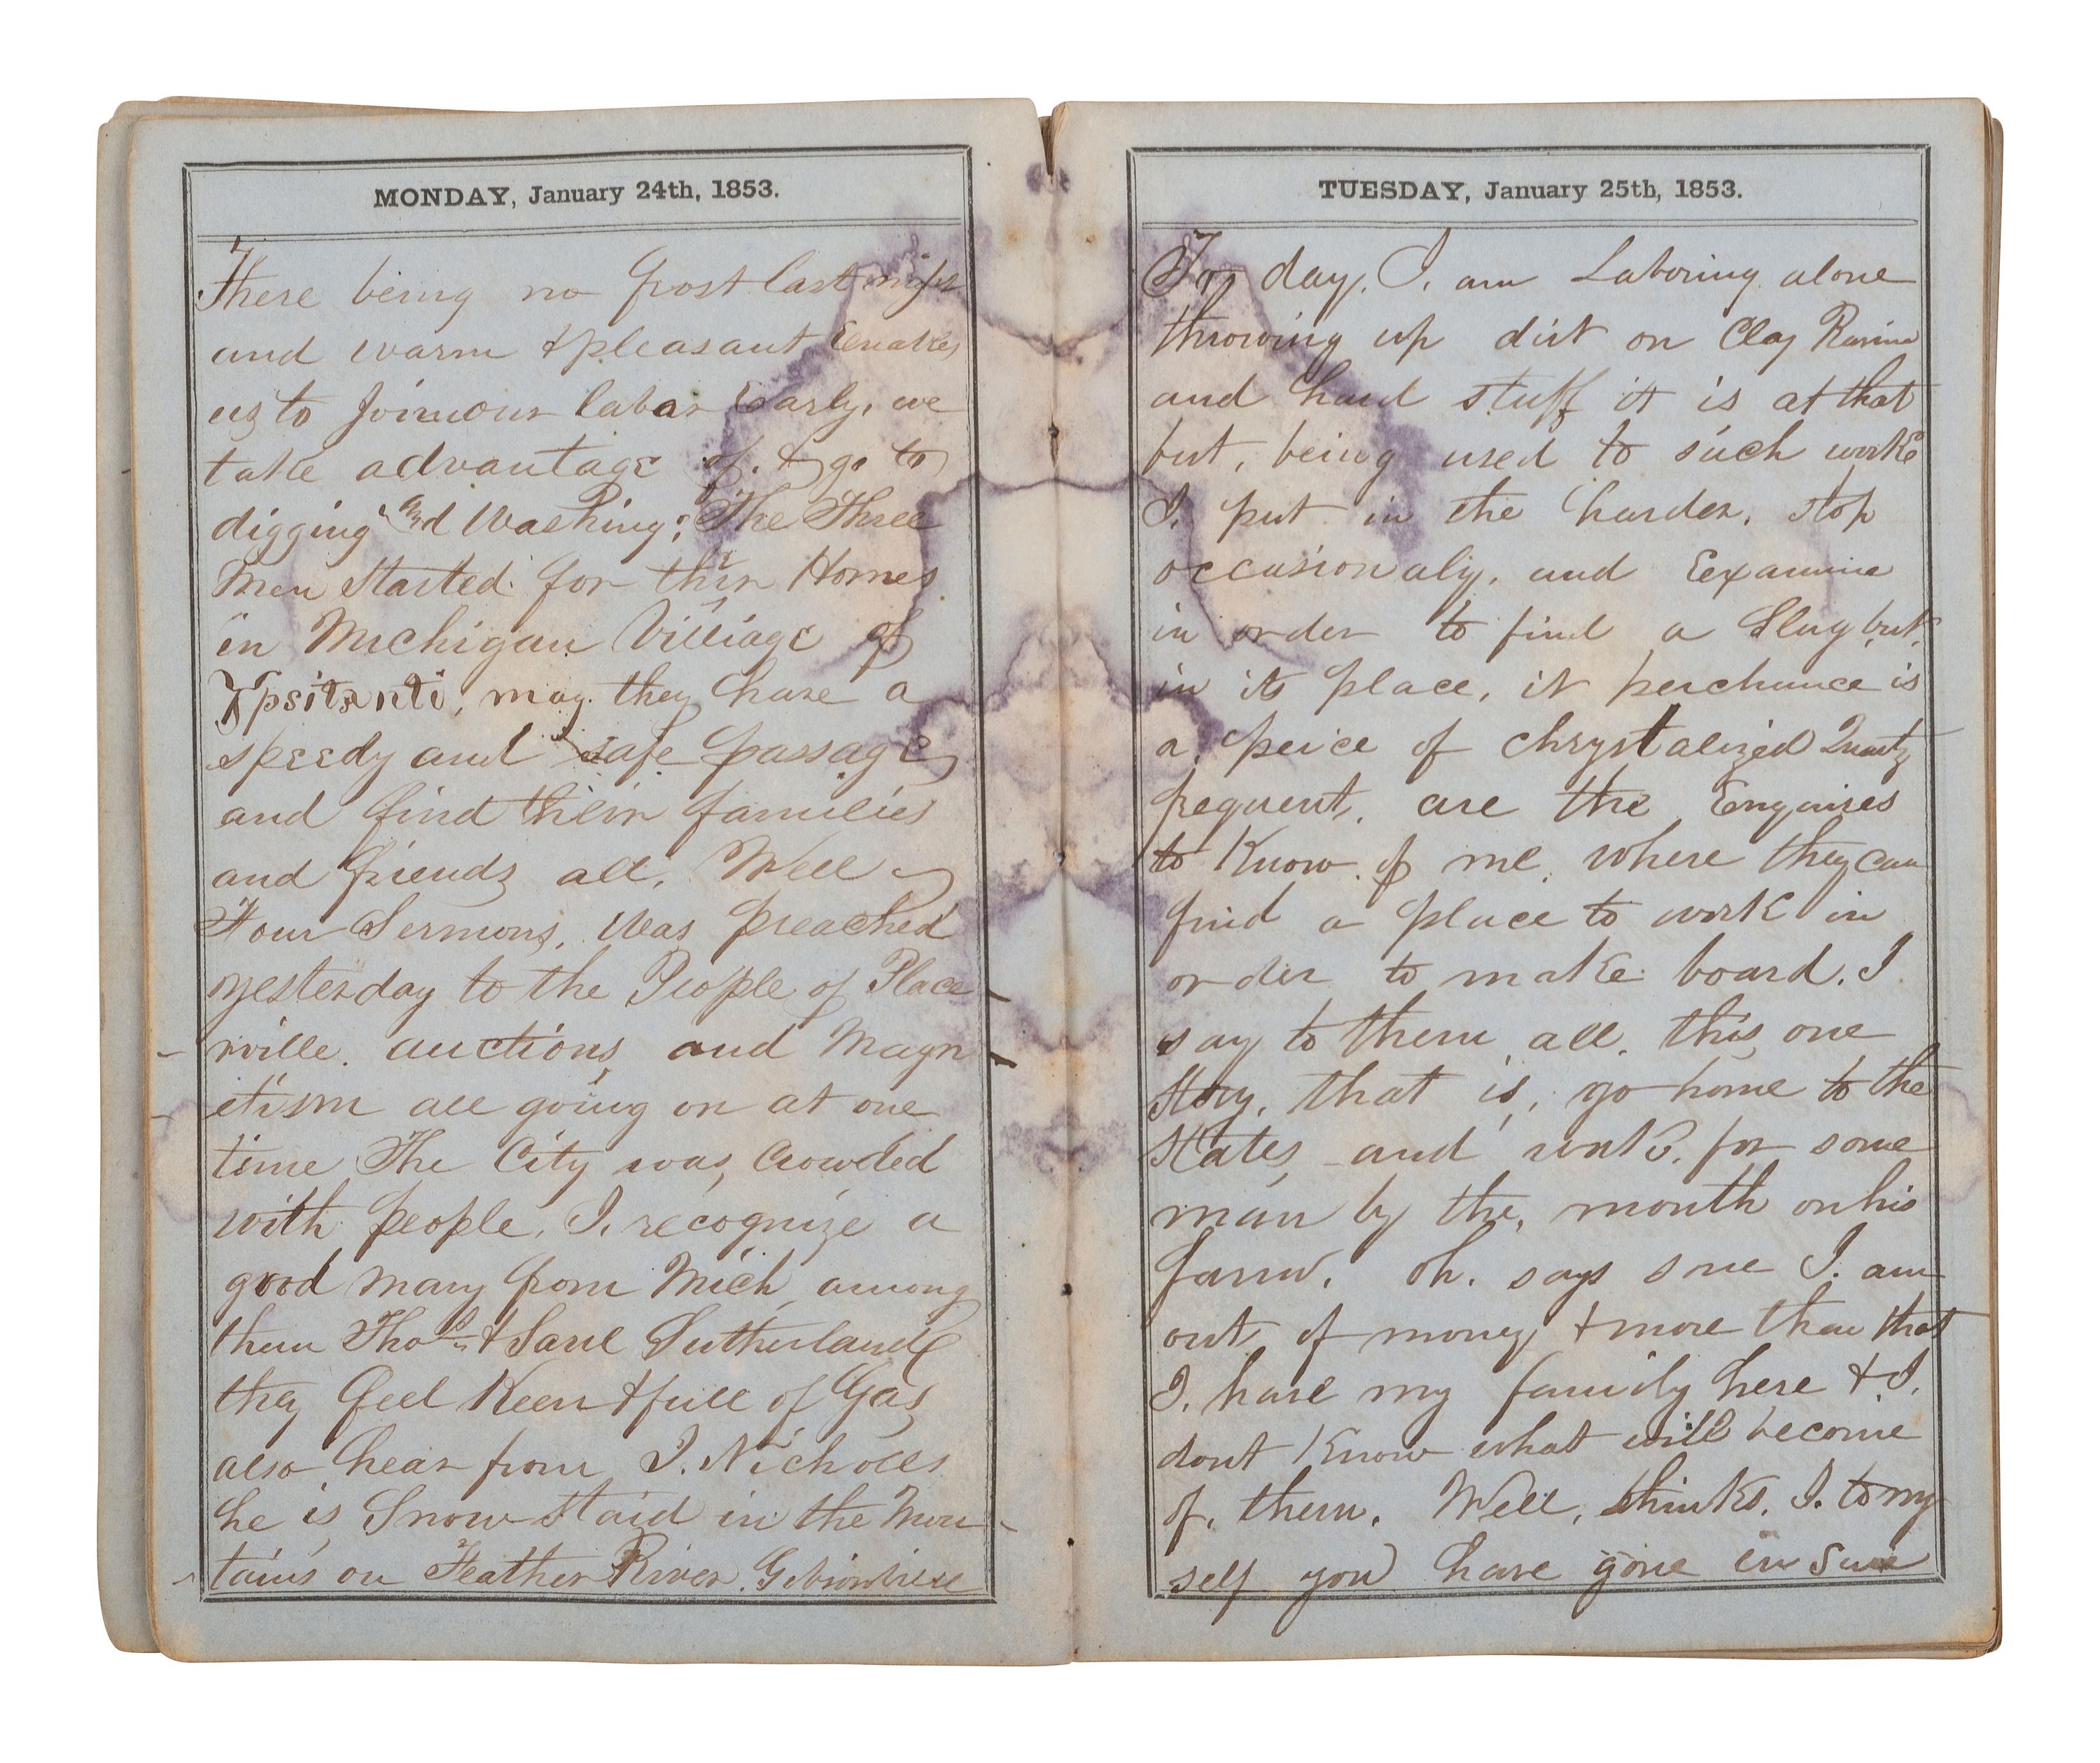 MONDAY, January 24th, 1853.
There being no frost last
and warm & pleasant Enables
us to Join our labar Early, we
take advantage of. & go to
digging and Washing; The Three
Men Started for thir Homes
in Michigan Villiage of
Ypsilanti, may they have a
speedy and safe passage
and find their families
and friends all, Well
Four Sermons, Was preached
yesterday to the People of Place
rville. auctions and Magn
etism all going on at one
time The City was, Crowded
with people, I, recognize a
good many from Mich, among
them Thos & Saul Sutherland
they feel Keen & full of Gas
also hear from J. Nicholls
he is Snow Staid in the Moun-
tains on Feather River.
TUESDAY, January 25th, 1853.
To day, I, am Laboring alone
throwing up dirt on Clay Ravine
and hard stuff it is at that
but, being used to such work
I, put in the harder, stop
occasionaly, and Eexamine
in order to find a Slug but,
in its place, it perchance is
a, peice of chrystalized Quartz
frequent, are the Enquires
to Know of me, where they can
find a place to work in
order to make board. I
say to them all, this, one
Story, that is, go home to the
States and work, for some
man by the, month on his
farm, oh. says some I. am
out, of money & more than that
I, have my family here & I,
dont Know what will become
of, them, Well, thinks, I. to my
self you have gone in Sure